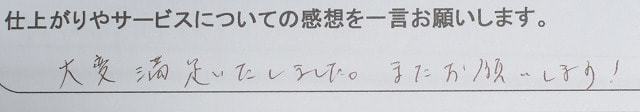 仕上がりやサービスについての感想を一言お願いします。
大変満足いたしました。またお願いします!